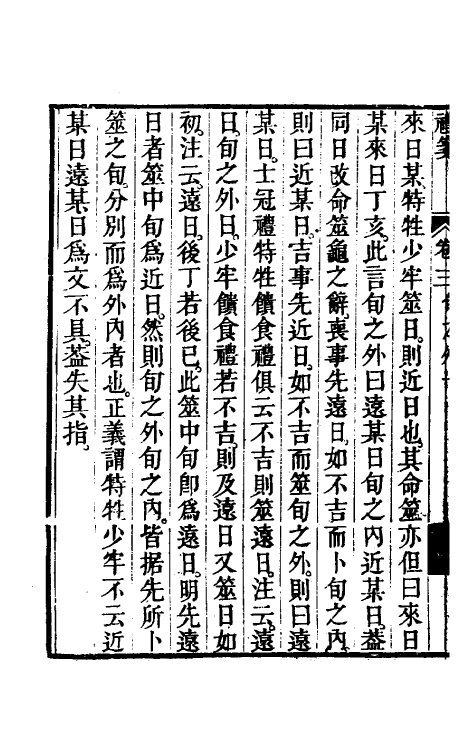 禮箋 卷三
來日某特牲少牢筮日則近日也其命筮亦但曰來日
某來日丁亥此言旬之外曰遠某日旬之內近某日葢
同日改命筮龜之辭喪事先遠日如不吉而卜旬之內
則曰近某日吉事先近日如不吉而筮旬之外則曰遠
某日士冠禮特牲饋食禮俱云不吉則筮遠日注云遠
日旬之外日少牢饋食禮若不吉則及遠日又筮日如
初注云遠日後丁若後已此筮中旬卽爲遠日明先遠
日者筮中旬爲近日然則旬之外旬之內皆据先所卜
筮之旬分別而爲外內者也正義謂特牲少牢不云近
某日遠某日爲文不具葢失其指